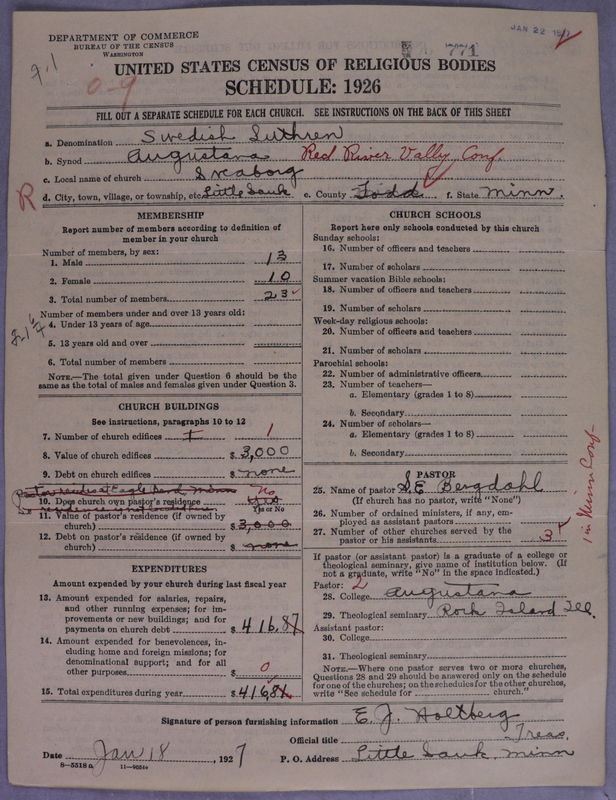 DEPARTMENT OF COMMERCE
BUREAU OF THE CENSUS
WASHINGTON
JAN 22 1927
771
UNITED STATES CENSUS OF RELIGIOUS BODIES
SCHEDULE: 1926
0-9
FILL OUT A SEPARATE SCHEDULE FOR EACH CHURCH. SEE INSTRUCTIONS ON THE BACK OF THIS SHEET
a. Denomination Swedish Luthren
b. Synod Augustana Red River Vally Conf.
c. Local name of church Sveaborg
R
d. City, town, village, or township, etc. Little Sauk e. County Todd f. State Minn.
MEMBERSHIP
Report number of members according to definition of
member in your church
Number of members, by sex:
1. Male 13
2. Female 10
3. Total number of members 23
Number of members under and over 13 years old:
4. Under 13 years of age
5. 13 years old and over
6. Total number of members
NOTE.—The total given under Question 6 should be the
same as the total of males and females given under Question 3.
CHURCH BUILDINGS
See instructions, paragraphs 10 to 12
7. Number of church edifices 1 1
8. Value of church edifices $ 3,000
9. Debt on church edifices $ none
Pastor resides at Eagle Bend Minn
10. Does church own pastor's residence No
Yes or No
11. Value of pastor's residence (if owned by
church) $ 3,000
12. Debt on pastor's residence (if owned by
church) $ none
EXPENDITURES
Amount expended by your church during last fiscal year
13. Amount expended for salaries, repairs,
and other running expenses; for im-
provements or new buildings; and for
payments on church debt $ 416.87
14. Amount expended for benevolences, in-
cluding home and foreign missions; for
denominational support; and for all
other purposes $ 0
15. Total expenditures during year $ 416.87
CHURCH SCHOOLS
Report here only schools conducted by this church
Sunday schools:
16. Number of officers and teachers
17. Number of scholars
Summer vacation Bible schools:
18. Number of officers and teachers
19. Number of scholars
Week-day religious schools:
20. Number of officers and teachers
21. Number of scholars
Parochial schools:
22. Number of administrative officers
23. Number of teachers—
a. Elementary (grades 1 to 8)
b. Secondary
24. Number of scholars—
a. Elementary (grades 1 to 8)
b. Secondary
PASTOR
25. Name of pastor S.E Bergdahl
(If church has no pastor, write "None")
26. Number of ordained ministers, if any, em-
ployed as assistant pastors
27. Number of other churches served by the
pastor or his assistants 3
1 in Minn Conf-
If pastor (or assistant pastor) is a graduate of a college or
theological seminary, give name of institution below. (If
not a graduate, write "No" in the space indicated.)
Pastor: 2
28. College Augustana
29. Theological seminary Rock Island Ill.
Assistant pastor:
30. College
31. Theological seminary
NOTE.—Where one pastor serves two or more churches,
Questions 28 and 29 should be answered only on the schedule
for one of the churches; on the schedules for the other churches,
write "See schedule for church."
Signature of person furnishing information E. J. Holtberg
Official title Treas.
Date Jan 18, 1927 P. O. Address Little Sauk, Minn
8-5518 a